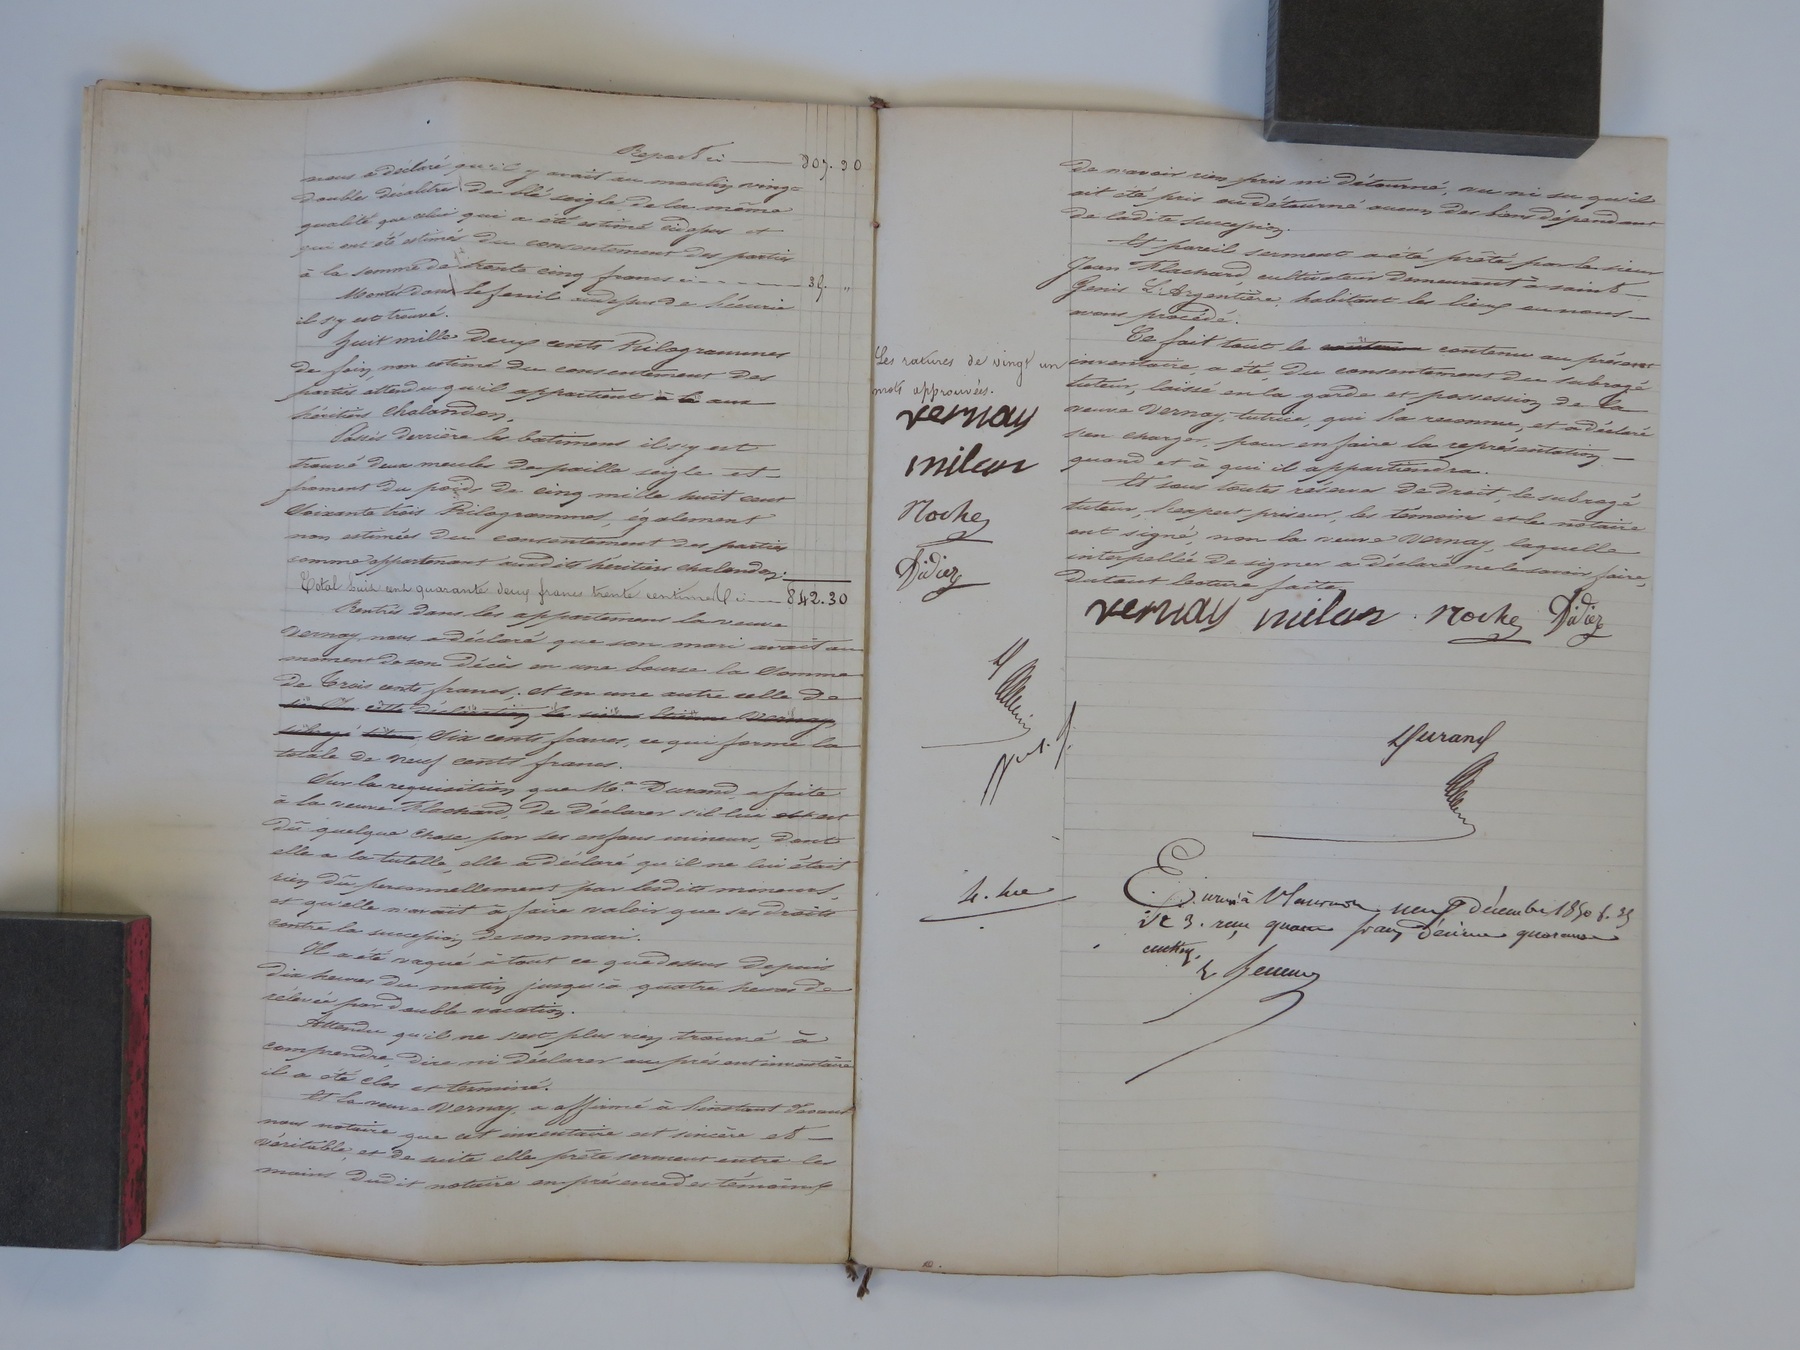 Report ci ——— 807.30
nous a déclaré qu'il y avait au moulin vingt
doubles décalitres de blé seigle de la même
qualité que celui qui a été estimé cidessus et
qui ont été estimés du consentement des parties
à la somme de trente cinq francs ci ------ 35. "
Montés dans le fenil audessus de l'écurie
il s'y est trouvé.
huit mille deux cents Kilogrammes
de foin, non estimé du consentement des
parties attendu qu'il appartient aux
héritiers Chalandon.
Passés derrière les batimens il s'y est
trouvé deux meules de paille seigle et
froment du poids de cinq mille huit cent
Soixante trois Kilogrammes, également
non estimées du consentement des parties
comme appartenant auxdits héritiers chalandon.
Total huit cent quarante deux francs trente centimes ci —— 842.30
Rentrés dans les appartemens la veuve
Vernay, nous a déclaré que son mari avait au
moment de son décès en une bourse la Somme
de trois cents francs; et en une autre celle de
cette déclaration le sieur Etienne Vernay
subrogé tuteur, Six cents francs, ce qui forme la
totale de neuf cents francs.
Sur la requisition que Me. Durand a faite
à la veuve Flachard, de déclarer s'il lui est
dû quelque chose par ses enfans mineurs, dont
elle a la tutelle, elle a déclaré qu'il ne lui était
rien dû personnellement par lesdits mineurs,
et qu'elle n'avait à faire valoir que ses droits
contre la succession de son mari.
Il a été vaqué à tout ce que dessus depuis
dix heures du matin jusqu'à quatre heures de
relevée par double vacation.
Attendu qu'il ne s'est plus rien trouvé à
comprendre, dire ni déclarer au présent inventaire
il a été clos et terminé.
Et la veuve Vernay, a affirmé à l'instant devant
nous notaire que cet inventaire est sincère et
véritable, et de suite elle prête serment entre les
mains dudit notaire en présence des témoins
de n'avoir rien pris ni détourné, vu ni su qu'il
ait été pris ou détourné aucun des biens dépendant
de ladite succession.
Et pareil serment a été prêté par le sieur
Jean Flachard, cultivateur demeurant à saint
Genis L'Argentière, habitant les lieux ou nous
avons procédé.
Ce fait tout le contenu au présent
inventaire, a été, du consentement du subrogé
tuteur, laissé en la garde et possession de la
veuve Vernay, tutrice, qui l'a reconnu, et a déclaré
s'en charger, pour en faire la représentation
quand et à qui il appartiendra.
Et sous toutes réserves de droit, le subrogé
tuteur, l'expert priseur, les témoins et le notaire
ont signé, non la veuve Vernay, laquelle
interpellée de signer a déclaré ne le savoir faire,
du tout lecture faite.
vernay milan Noche Didier
Durand
Les ratures de vingt un
mots approuvés.
vernay
milan
Noche
Didier
D
Enreg. à St Laurent neuf décembre 1850 f. 35
Vo C 3. reçu quatre francs décime quarante
centimes.